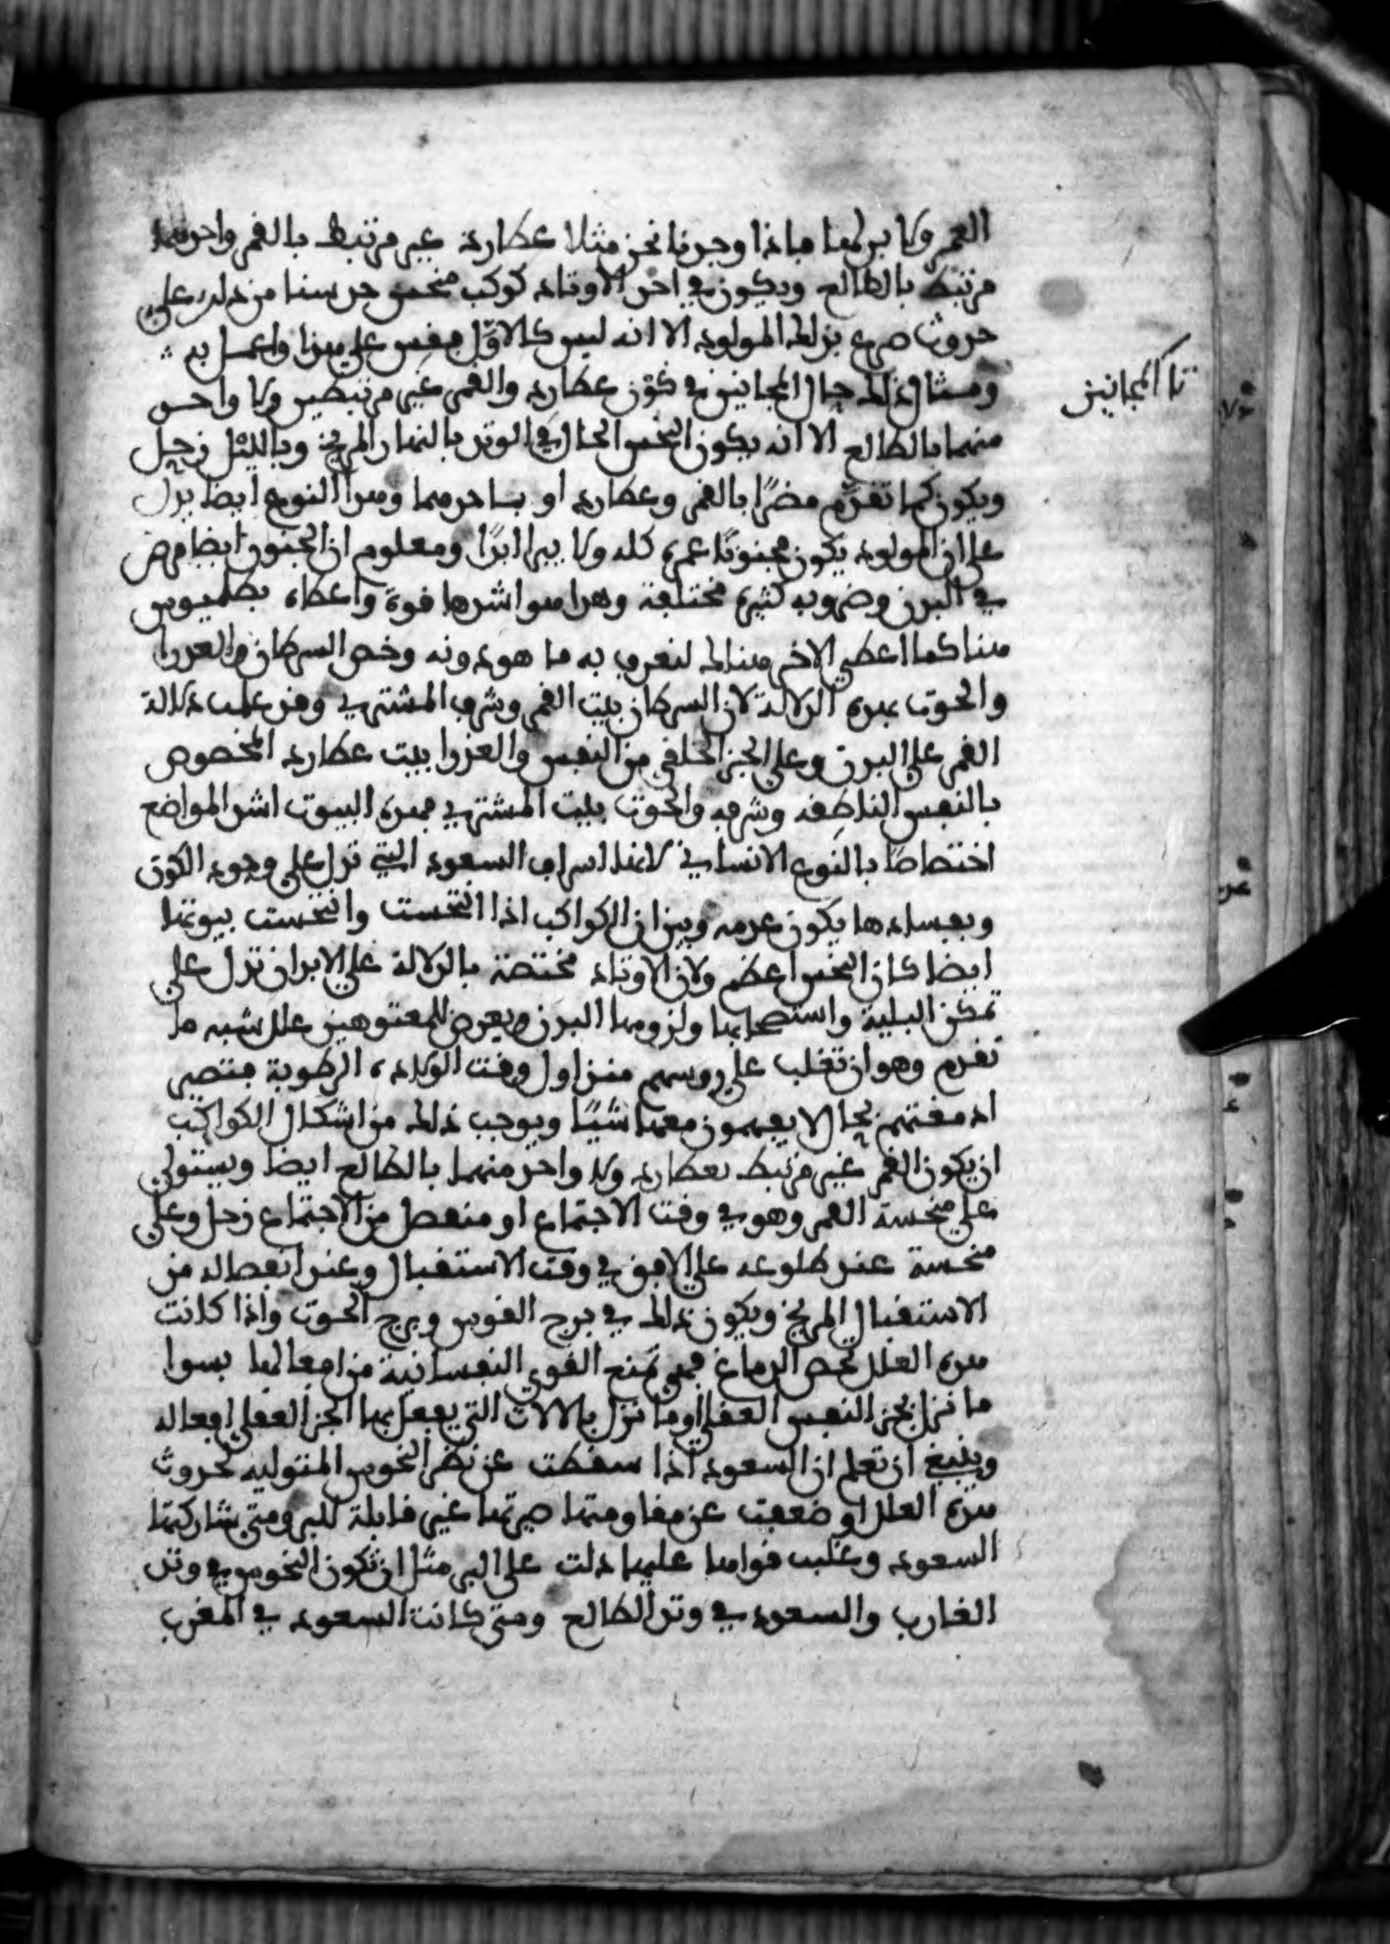 القمر ولا بد لهما فاذا وجدنا نحن مثلا عطارد غير مرتبط بالقمر واحدهما
مرتبط بالطالع ويكون في احد الاوتاد كوكب منحس حدسنا من ذلك على
حدوث صرع بذلك المولود الا انه ليس كالاول فقس على هذا واعمل به
ومثال ذلك حال المجانين في كون عطارد والقمر غير مرتبطين ولا واحد
تا المجانين
منهما بالطالع الا انه يكون النحس الحال في الوتد بالنهار المريخ وبالليل زحل
ويكون كما تقدم مضرا بالقمر وعطارد او باحدهما وهذا النوع ايضا يدل
على ان المولود يكون مجنونا عمره كله ولا يبرا ابدا ومعلوم ان الجنون ايضا مرض
في البدن وضروبه كثيرة مختلفة وهذا هو اشدها قوة واعطاه بطلميوس
هنا كما اعطى الاخر هنالك لنعرف به ما هو دونه وخص السرطان والعذرا
والحوت بهذه الدلالة لان السرطان بيت القمر وشرف المشتري وقد علمت دلالة
القمر على البدن وعلى الجز الخلفي من النفس والعذرا بيت عطارد المخصوص
بالنفس الناطقة وشرفه والحوت بيت المشتري فهذه البيوت اشد المواضع
اختصاصا بالنوع الانساني لانها اشراف السعود التي تدل على وجود الكون
وبفسادها يكون عدمه وبين ان الكواكب اذا انتحست وانتحست بيوتها
ايضا كان النحس اعظم ولان الاوتاد مختصة بالدلالة على الابدان تدل على
تمكن البلية واستصحابها ولزومها البدن ويعرض للمعتوهين علل شبه ما
تقدم وهو ان تغلب على روسهم منذ اول وقت الولادة الرطوبة فتصير
ادمغتهم بحال لا يفهمون معها شيئا ويوجب ذلك من اشكال الكواكب
ان يكون القمر غير مرتبط بعطارد ولا واحد منهما بالطالع ايضا ويستولي
على منحسة القمر وهو في وقت الاجتماع او منفصل من الاجتماع زحل وعلى
منحسة عند طلوعه على الافق في وقت الاستقبال وعند انفصاله من
الاستقبال المريخ ويكون ذلك في برج القوس وبرج الحوت واذا كانت
هذه العلل تخص الدماغ فهي تمنع القوى النفسانية من افعالها بسوا
ما نزل بجز النفس العقلي او ما نزل بالالات التي يفعل بها الجز العقلي افعاله
وينبغي ان تعلم ان السعود اذا سقطت عن نظر النحوس المتوليه لحدوث
هذه العلل او ضعفت عن مقاومتها صيرتها غير قابلة للبر ومتى شاركتها
السعود وغلبت قواها عليها دلت على البر مثل ان تكون النحوس في وتد
الغارب والسعود في وتد الطالع ومتى كانت السعود في المغرب